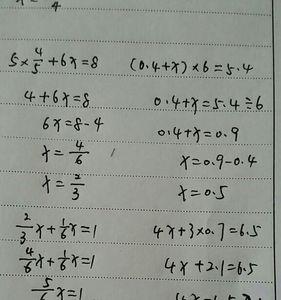 4
5×4/5+6x=8
4+6x=8
6x=8-4
x=4/6
x=2/3
2/3x+1/6x=1
4/6x+1/6x=1
5/6x=1
(0.4+x)×6=5.4
0.4+x=5.4÷6
0.4+x=0.9
x=0.9-0.4
x=0.5
4x+3×0.7=6.5
4x+2.1=6.5